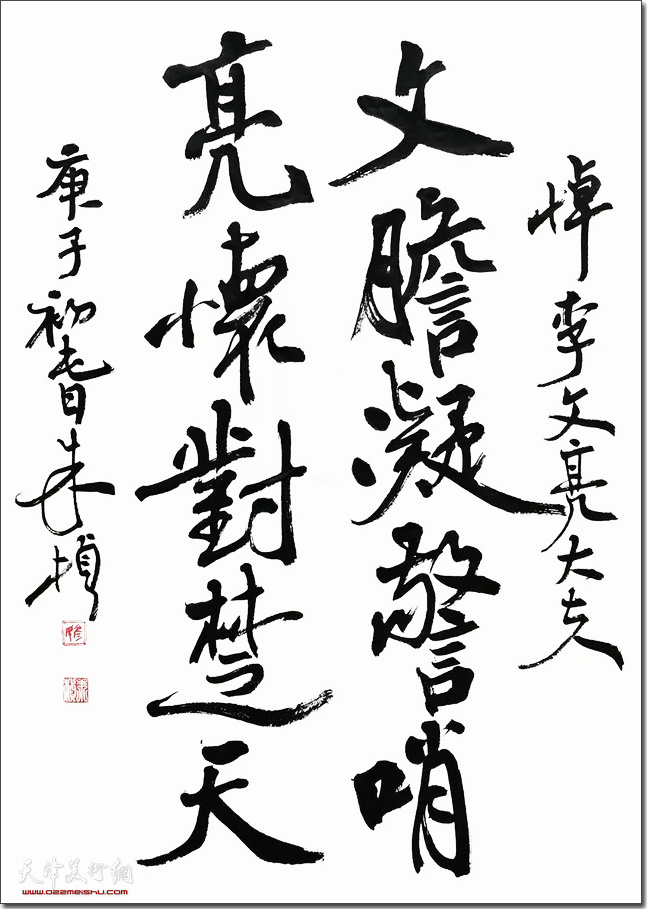 悼李文亮大夫
文膽凝警哨
亮懷對楚天
庚子初春朱楨
天津美术网
www.022meishu.com